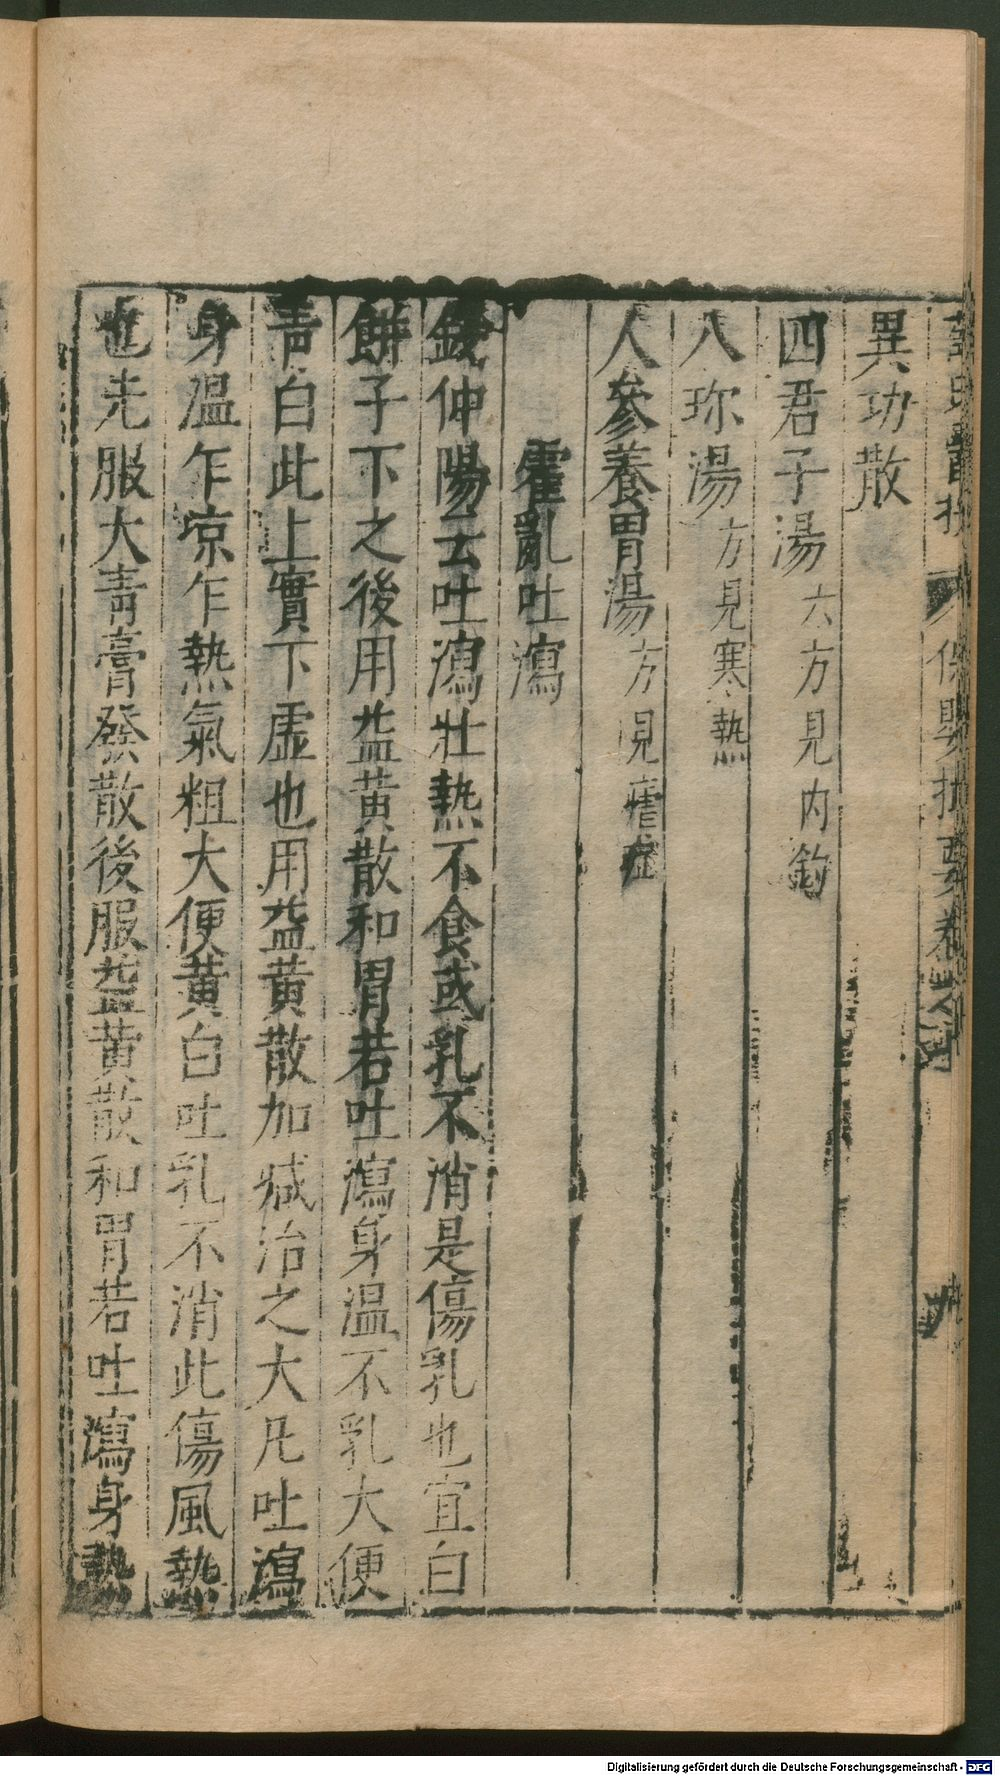 薛氏醫按 保嬰撮要卷之 九
異功散
四君子湯 六方見內釣
八珎湯 方見寒熱
人參養胃湯 方見瘧症
霍亂吐瀉
錢仲陽云吐瀉壯熱不食或乳不消是傷乳也宜白
餅子下之後用益黃散和胃若吐瀉身溫不乳大便
青白此上實下虛也用益黃散加减治之大凡吐瀉
身溫乍凉乍熱氣粗大便黃白吐乳不消此傷風熱
也先服大青膏發散後服益黃散和胃若吐瀉身熱
Digitalisierung gefördert durch die Deutsche Forschungsgemeinschaft - DFG